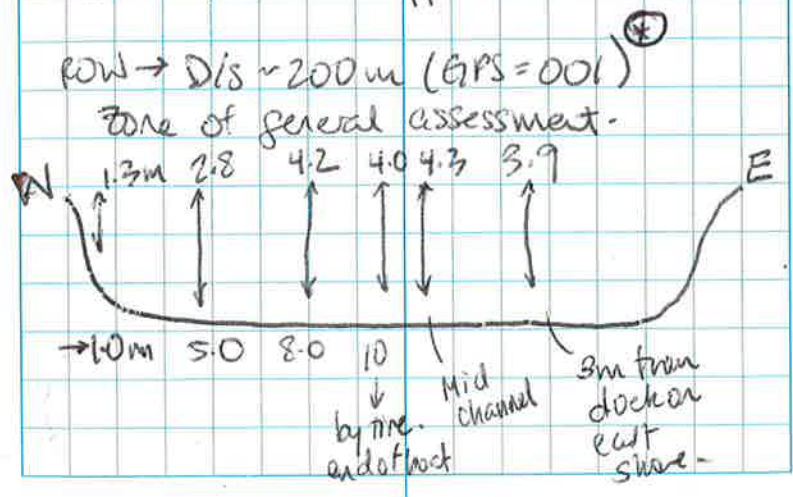 ROW → D/S ~200m (GPS=001) *
Zone of general assessment.
W 1.3m 2.8 4.2 4.0 4.3 3.9 E
→1.0m 5.0 8.0 10
Mid
channel
3m from
dock on
east
shore.
by
end of